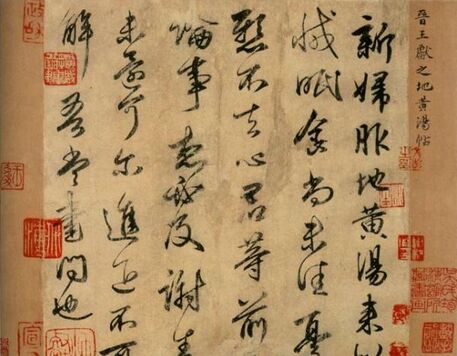 晉王獻之地黃湯帖
新婦服地黃湯來似
減眠食尚未佳憂
懸不去心君等前
論事想必及謝生
未還何爾進退不可
解吾當書問也